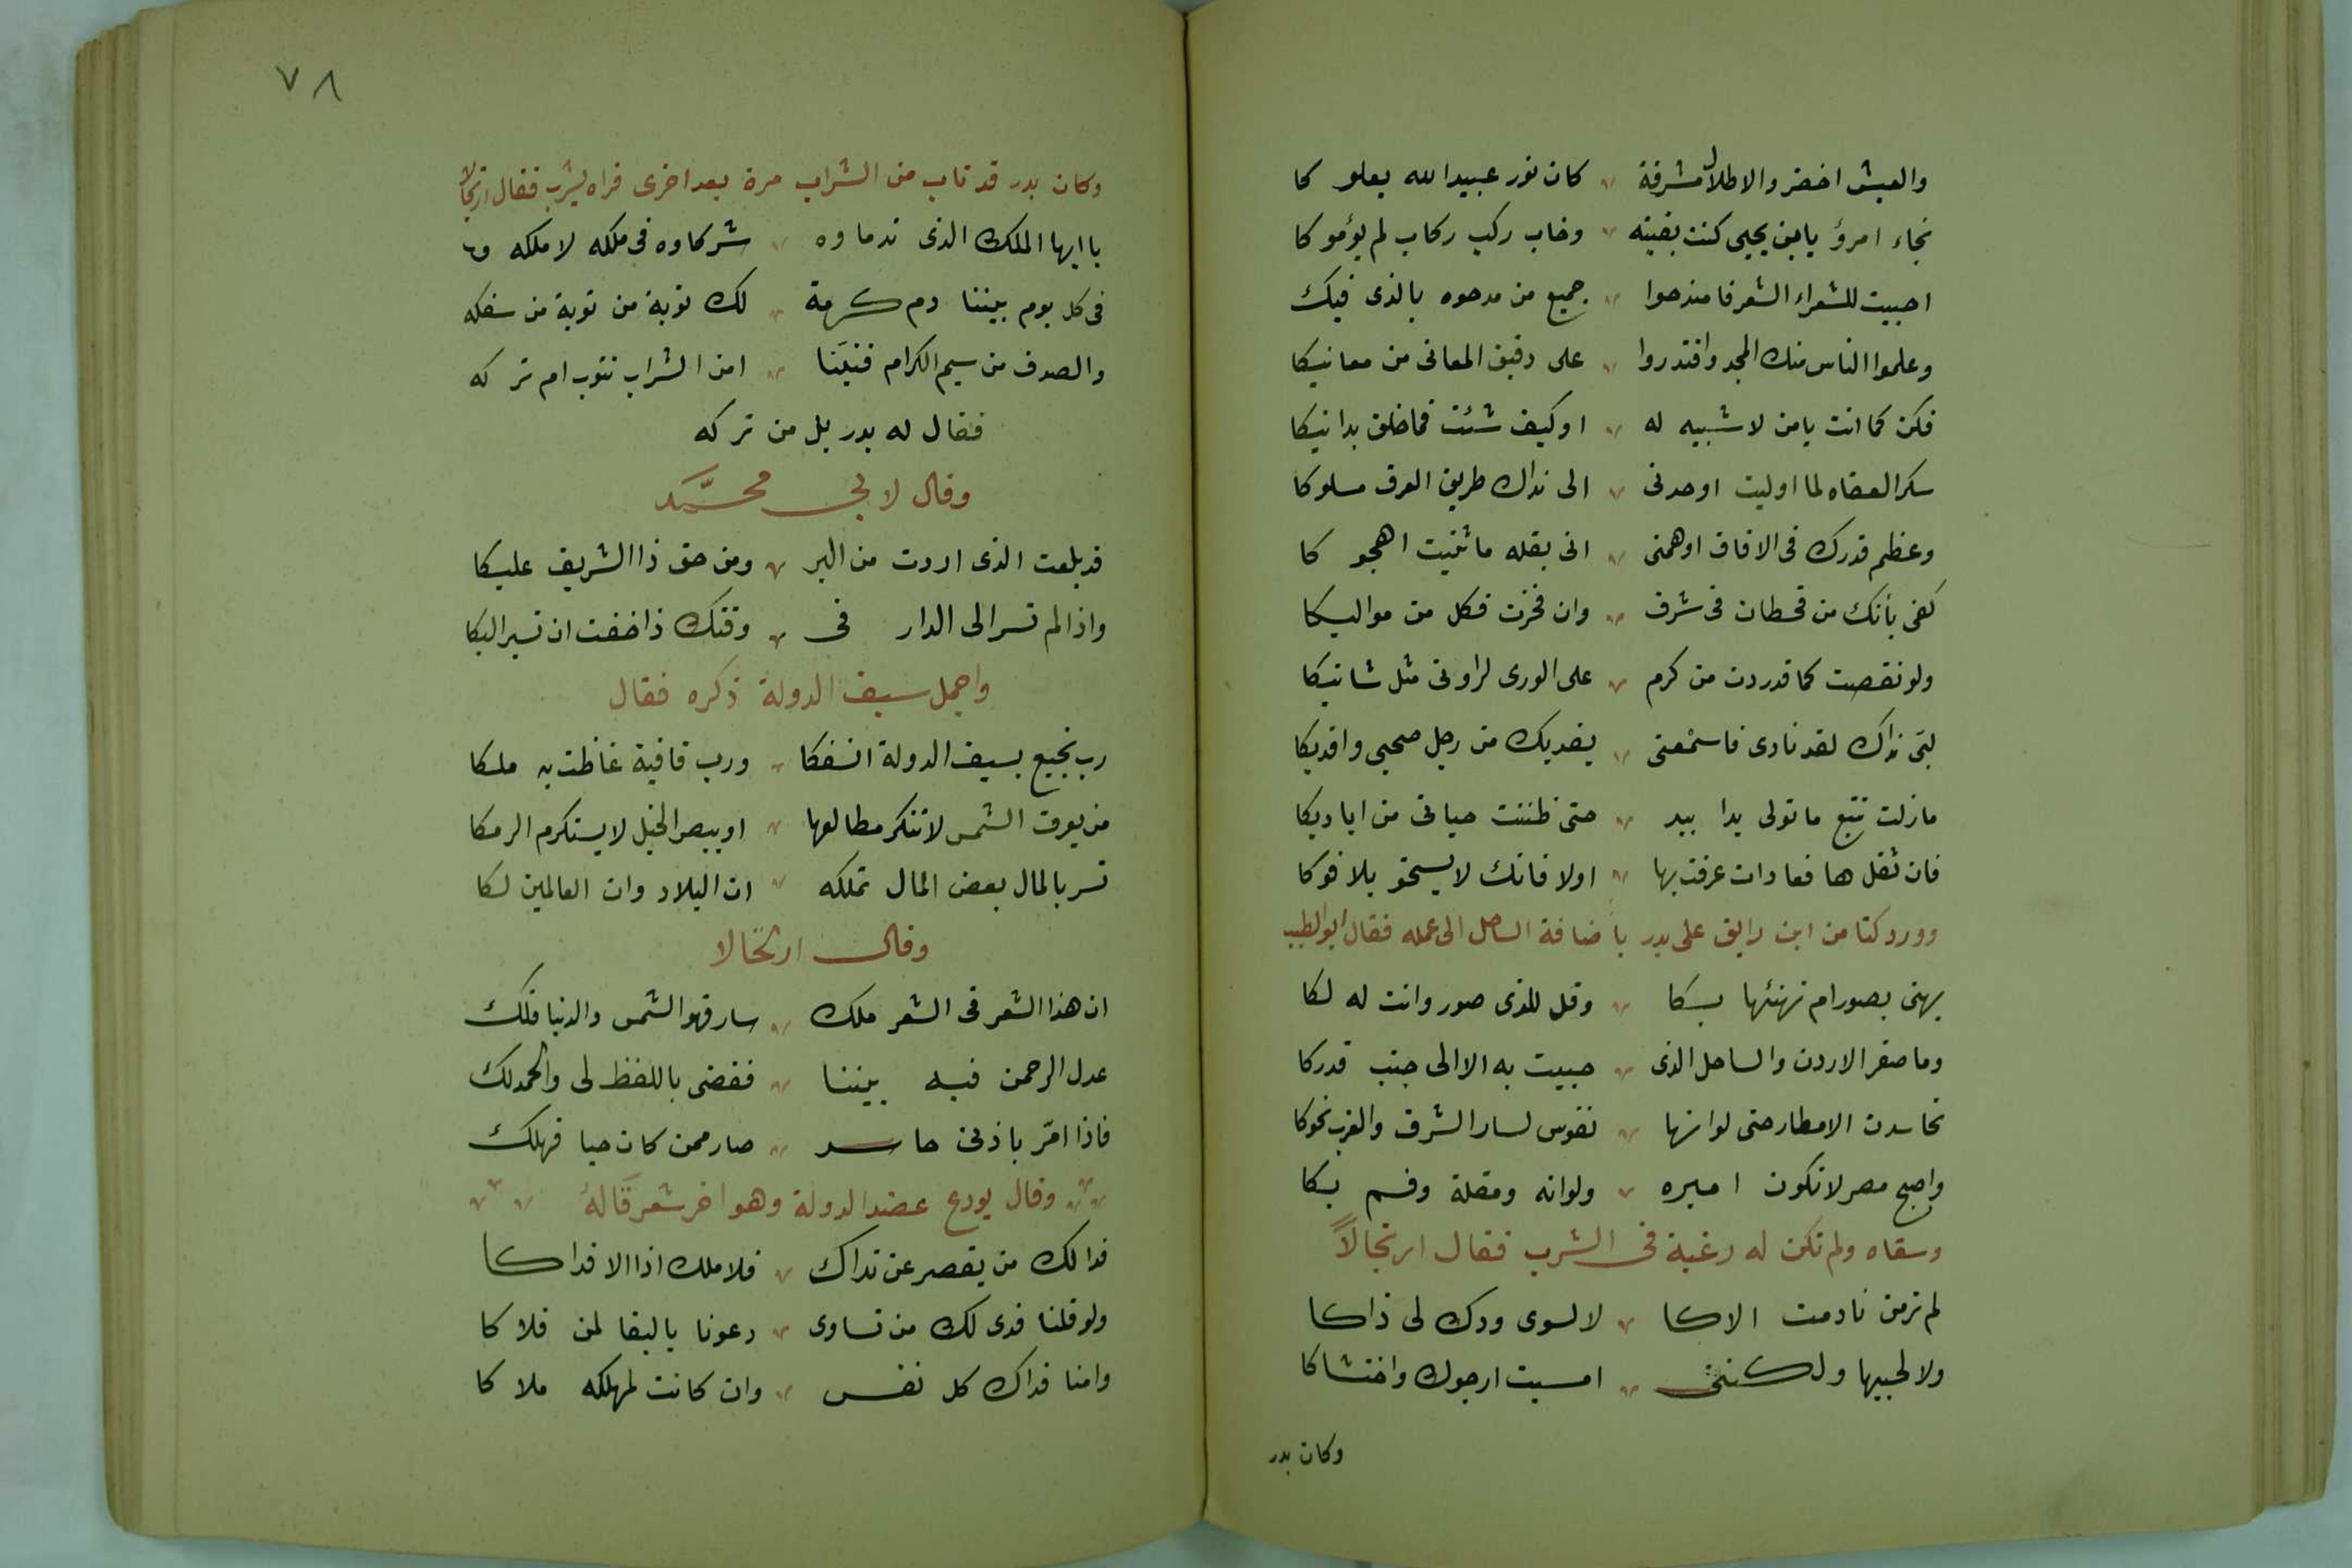 والعيش اخضر والاطلال مشرقة كان نور عبيدالله يعلو كا
نجاء امرؤ يا بن يحيى كنت بغيته وخاب ركب ركاب لم يؤمو كا
احييت للشعراء الشعر فامتدحوا جميع من مدحوه بالذى فيك
وعلموا الناس منك المجد واقتدروا على دقيق المعانى من معانيكا
فكن كما انت يا من لا شبيه له او كيف شئت فما خلق يدانيكا
سكر العفاه لما اوليت اوجدنى الى نداك طريق العرف مسلوكا
وعظم قدرك فى الافاق اوهمنى انى بقله ما اثنيت اهجو كا
كفى بأنك من قحطان فى شرف وان فخرت فكل من مواليكا
ولو نقصت كما قد زدت من كرم على الورى لراونى مثل شانيكا
لبى نداك لقد نادى فاسمعنى يفديك من رجل صحبى وافديكا
ما زلت تتبع ما تولى يدا بيد حتى ظننت حياتى من اياديكا
فان تقل ها فعادات عرفت بها اولا فانك لا يسخو بلا فوكا
وورد كتا من ابن رايق على بدر باضافة الساحل الى عمله فقال ابوالطيب
يهنى بصور ام نهنئها بكا وقل للذى صور وانت له لكا
وما صغر الاردن والساحل الذى حبيت به الا الى جنب قدركا
تحاسدت الامطار حتى لو انها نفوس لسار الشرق والغرب نحوكا
واصبح مصر لا تكون اميره ولو انه ومقلة وفم بكا
وسقاه ولم تكن له رغبة فى الشرب فقال ارتجالاً
لم ترمن نادمت الاكا لا لسوى ودك لى ذاكا
ولا لحبيها ولكننى امسيت ارجوك واختشاكا
وكان بدر
٧٨
وكان بدر قد تاب من الشراب مرة بعد اخرى فراه يشرب فقال ارتجالا
يا ايها الملك الذى ندماوه شركاوه فى ملكه لا ملكه
فى كل يوم بيننا دم كرمة لك توبة من توبة من سفكه
والصدف من سيم الكرام فنبّنا امن الشراب نتوب ام تر كه
فقال له بدر بل من تركه
وقال لابى محمّد
قد بلغت الذى اردت من البر ومن حق ذا الشريف عليكا
واذا لم تسر الى الدار فى وقتك ذا خفت ان تسير اليكا
واجمل سيف الدولة ذكره فقال
رب نجيع بسيف الدولة انسفكا ورب قافية غاظت به ملكا
من يعرف الشمس لا تنكر مطالعها او يبصر الخيل لا يستكرم الرمكا
تسر بالمال بعض المال تملكه ان البلاد وان العالمين لكا
وقال ارتجالا
ان هذا الشعر فى الشعر ملك سار فهو الشمس والدنيا فلك
عدل الرحمن فيه بيننا فقضى باللفظ لى والحمد لك
فاذا امّر باذنى حاسد صار ممن كان حيا فهلك
وقال يودع عضد الدولة وهو اخر شعر قاله
فدا لك من يقصر عن نداك فلا ملك اذا الا فداكا
ولو قلنا فدى لك من تساوى دعونا بالبقا لمن قلا كا
وامنا فداك كل نفس وان كانت لمهلكه ملا كا